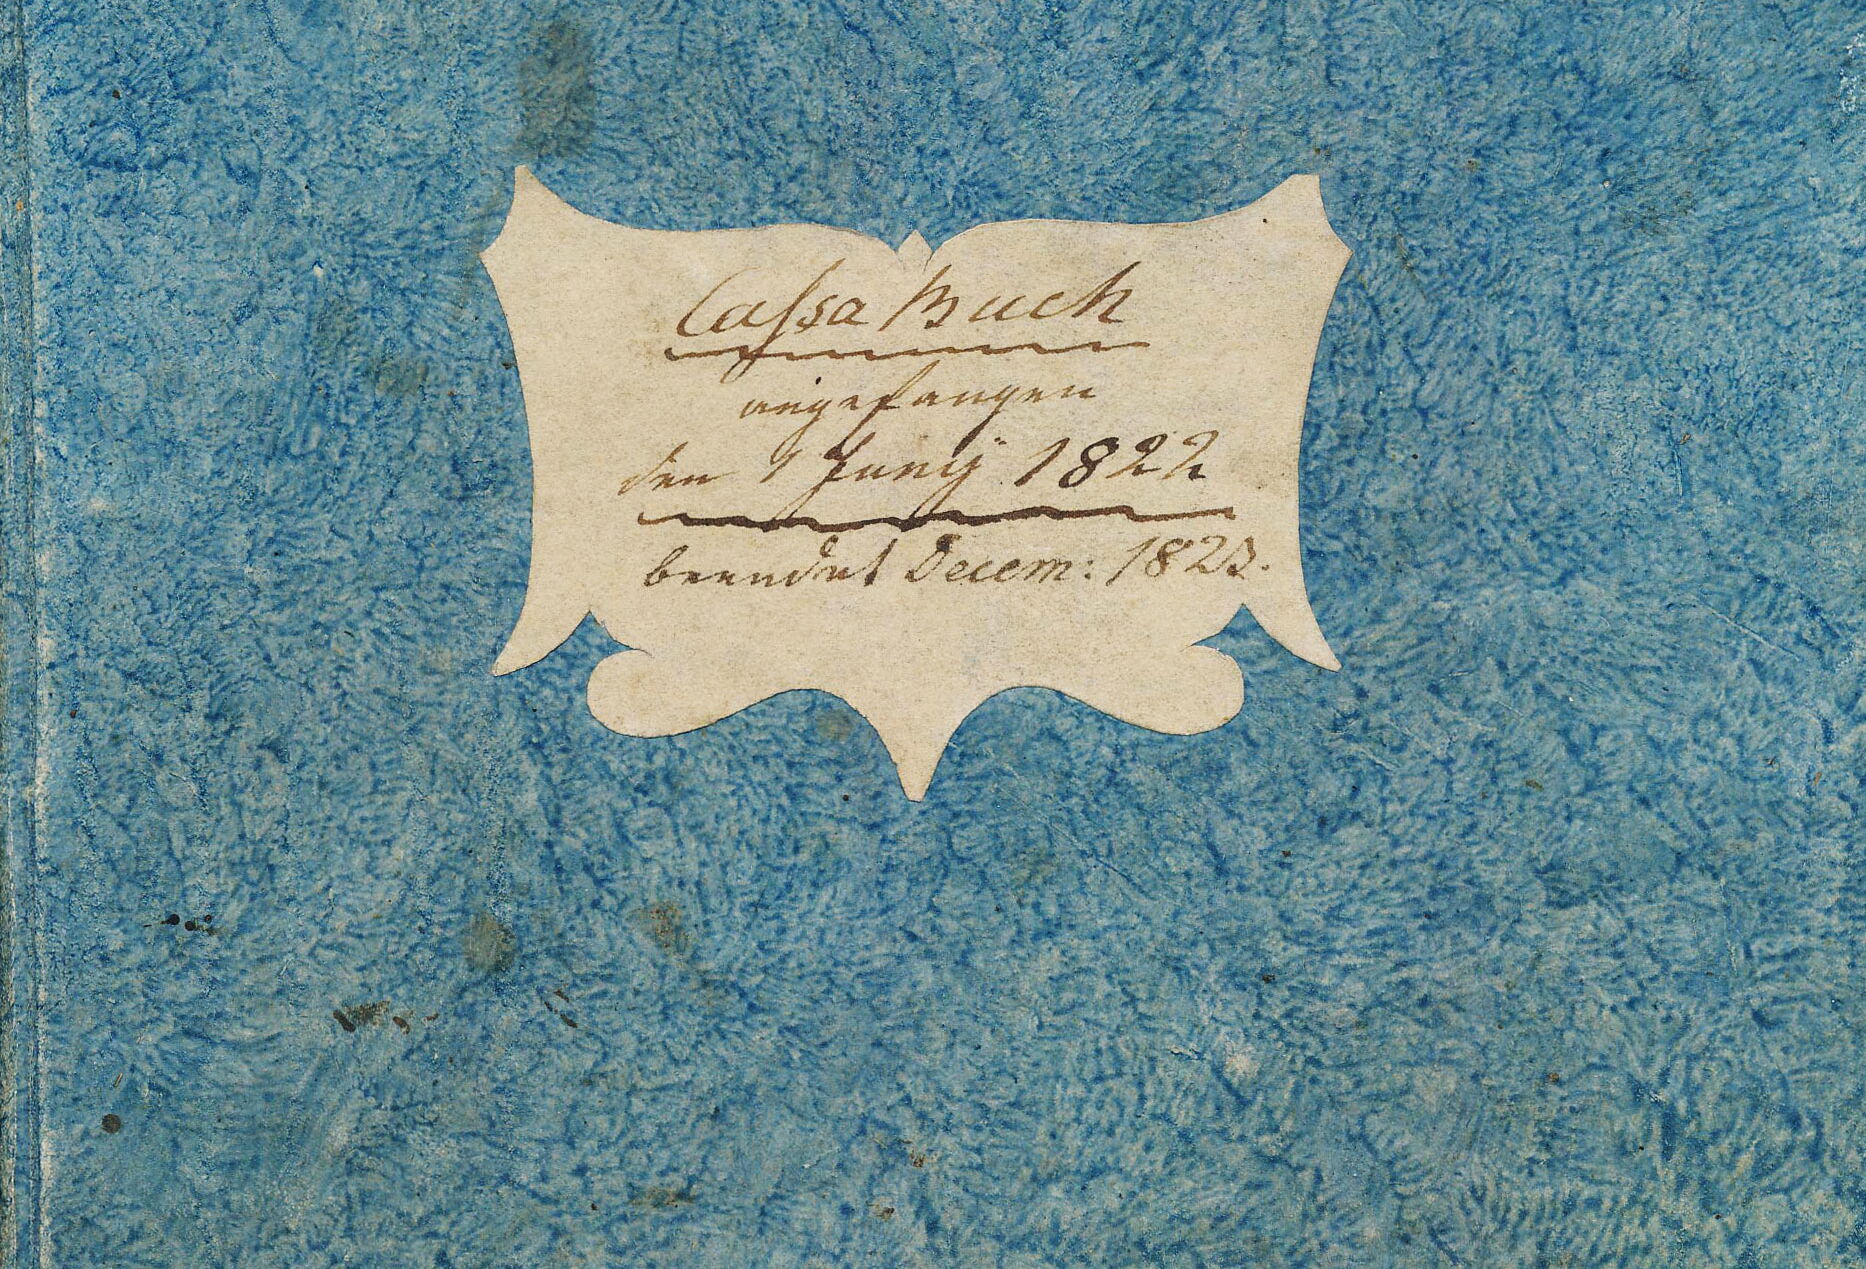 Caſsa Buch
angefangen
den 1 Junÿ 1822
beendet Decem: 1823.